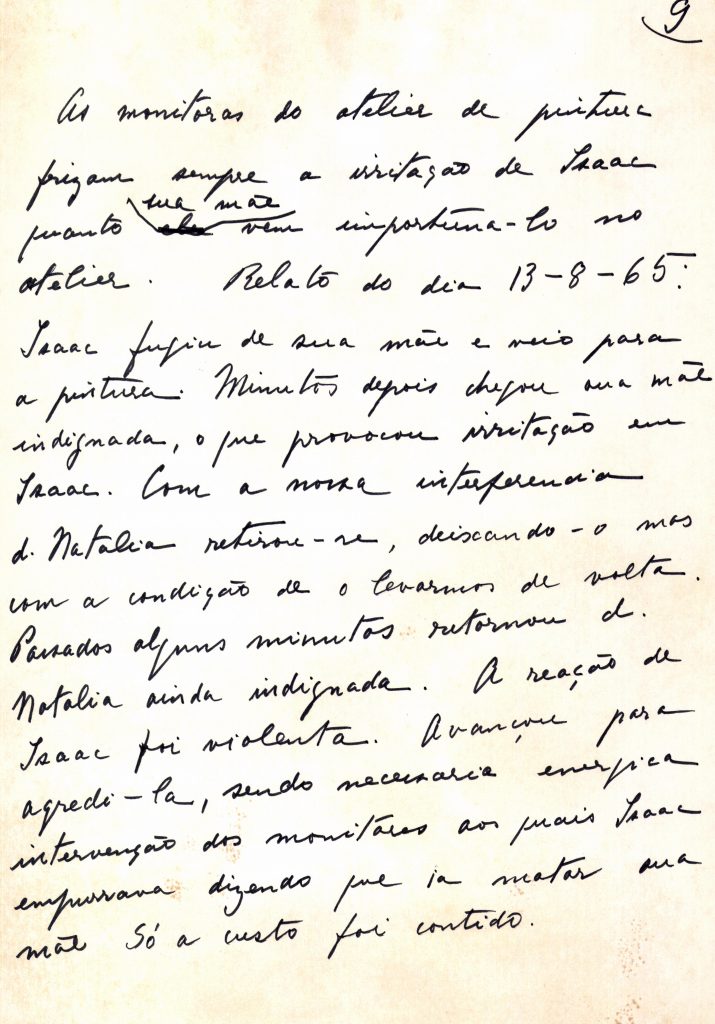 9
As monitoras do atelier de pintura
frizam sempre a irritação de Isaac
sua mãe
quanto ela vem importuna-lo no
atelier. Relato do dia 13-8-65:
Isaac fugiu de sua mãe e veio para
a pintura. Minutos depois chegou sua mãe
indignada, o que provocou irritação em
Isaac. Com a nossa interferencia
d. Natalia retirou-se, deixando-o mas
com a condição de o levarmos de volta.
Passados alguns minutos retornou d.
Natalia ainda indignada. A reação de
Isaac foi violenta. Avançou para
agredi-la, sendo necessaria energica
intervenção dos monitores aos quais Isaac
empurrava dizendo que ia matar sua
mãe Só a custo foi contido.